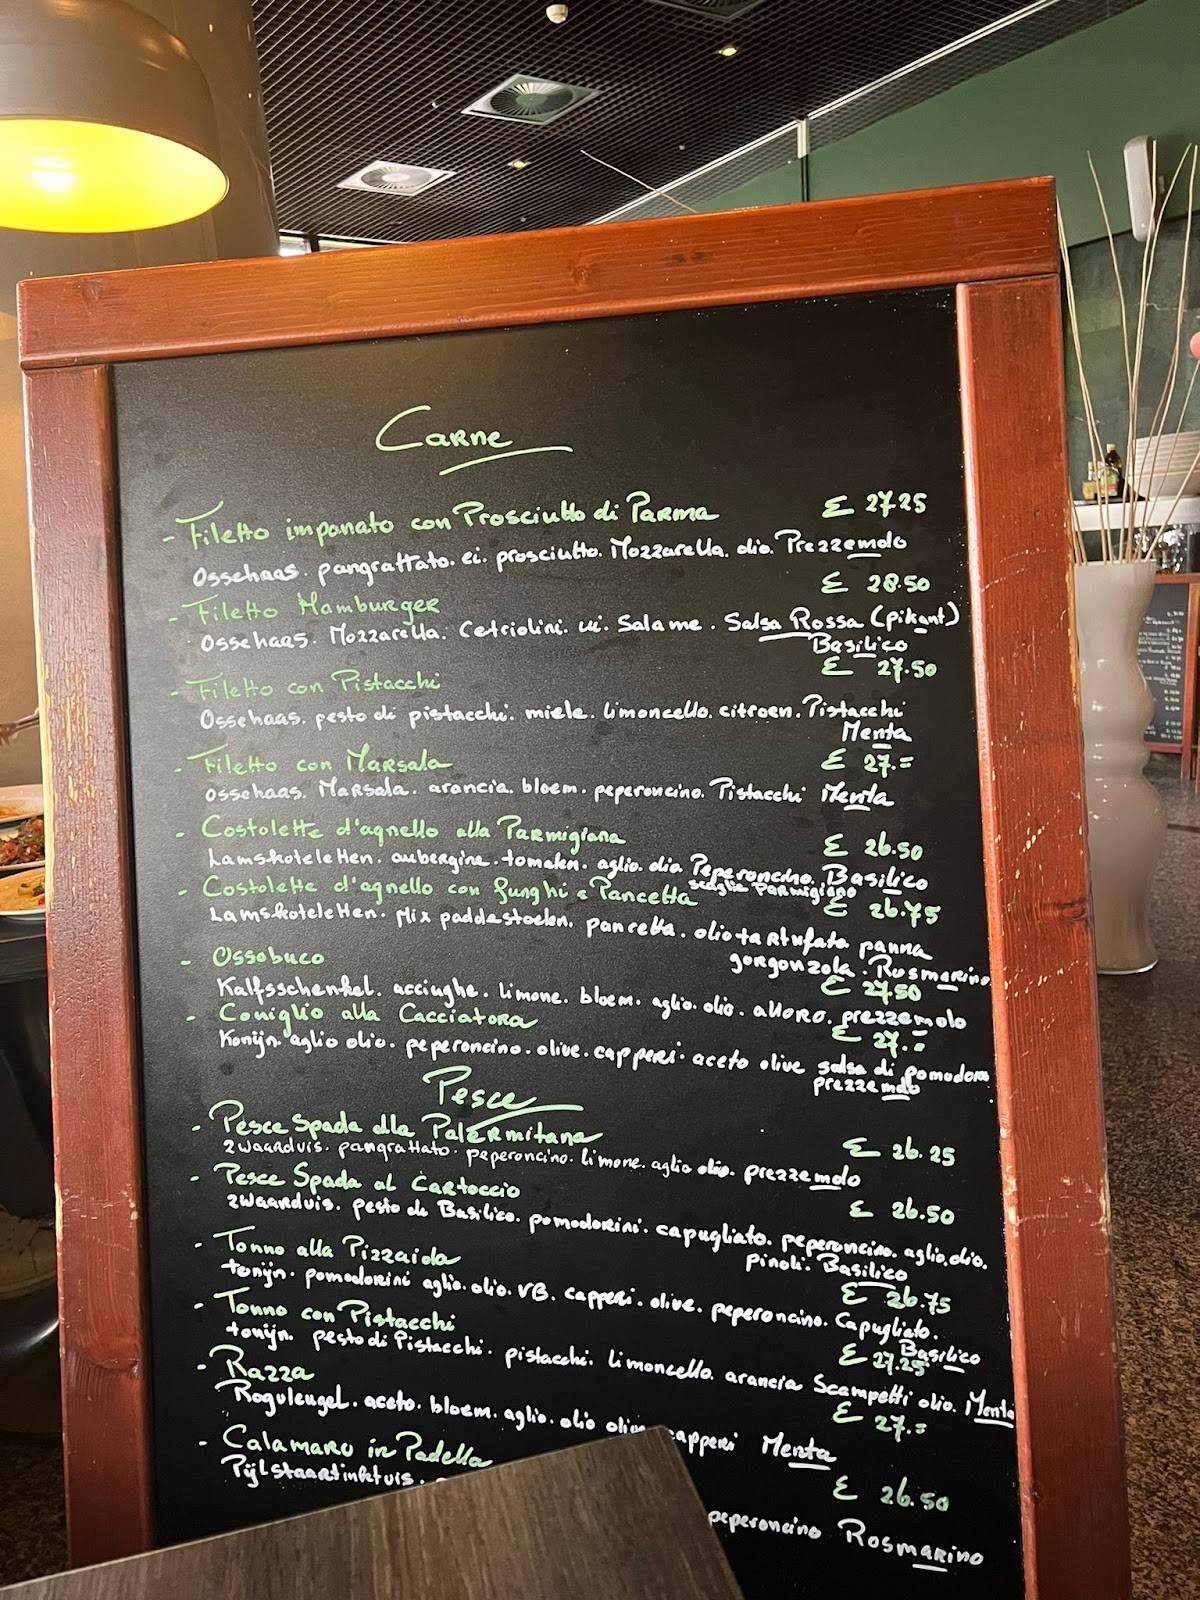 Carne
- Filetto impanato con Prosciutto di Parma € 27.25
Ossehaas. pangrattato. ei. prosciutto. Mozzarella. olio. Prezzemolo
- Filetto Hamburger € 28.50
Ossehaas. Mozzarella. Cetriolini. ui. Salame. Salsa Rossa (pikant)
Basilico
- Filetto con Pistacchi € 27.50
Ossehaas. pesto di pistacchi. miele. limoncello. citroen. Pistacchi
Menta
- Filetto con Marsala € 27.=
Ossehaas. Marsala. arancia. bloem. peperoncino. Pistacchi Menta
- Costolette d'agnello alla Parmigiana € 26.50
Lamskoteletten. aubergine. tomaten. aglio. olio Peperoncino. Basilico
scaglie Parmigiano
- Costolette d'agnello con funghi e Pancetta € 26.75
Lamskoteletten. Mix paddestoelen. pancetta. olio tartufata panna
gorgonzola. Rosmarino
- Ossobuco € 27.50
Kalfsschenkel. acciughe. limone. bloem. aglio. olio. alloro. prezzemolo
- Coniglio alla Cacciatora € 27.=
Konijn. aglio olio. peperoncino. olive. capperi. aceto olive salsa di pomodoro
prezzemolo
Pesce
- Pesce Spada alla Palermitana € 26.25
Zwaardvis. pangrattato. peperoncino. limone. aglio olio. prezzemolo
- Pesce Spada al Cartoccio € 26.50
Zwaardvis. pesto di Basilico. pomodorini. capugliato. peperoncino. aglio. olio.
Pinoli. Basilico
- Tonno alla Pizzaiola € 26.75
tonijn. pomodorini aglio. olio. VB. capperi. olive. peperoncino. Capugliato.
Basilico
- Tonno con Pistacchi € 27.25
tonijn. pesto di Pistacchi. pistacchi. limoncello. arancia Scampetti olio. Menta
- Razza € 27.=
Rogvleugel. aceto. bloem. aglio. olio olive capperi Menta
- Calamaro in Padella € 26.50
Pijlstaartinktvis.
peperoncino Rosmarino